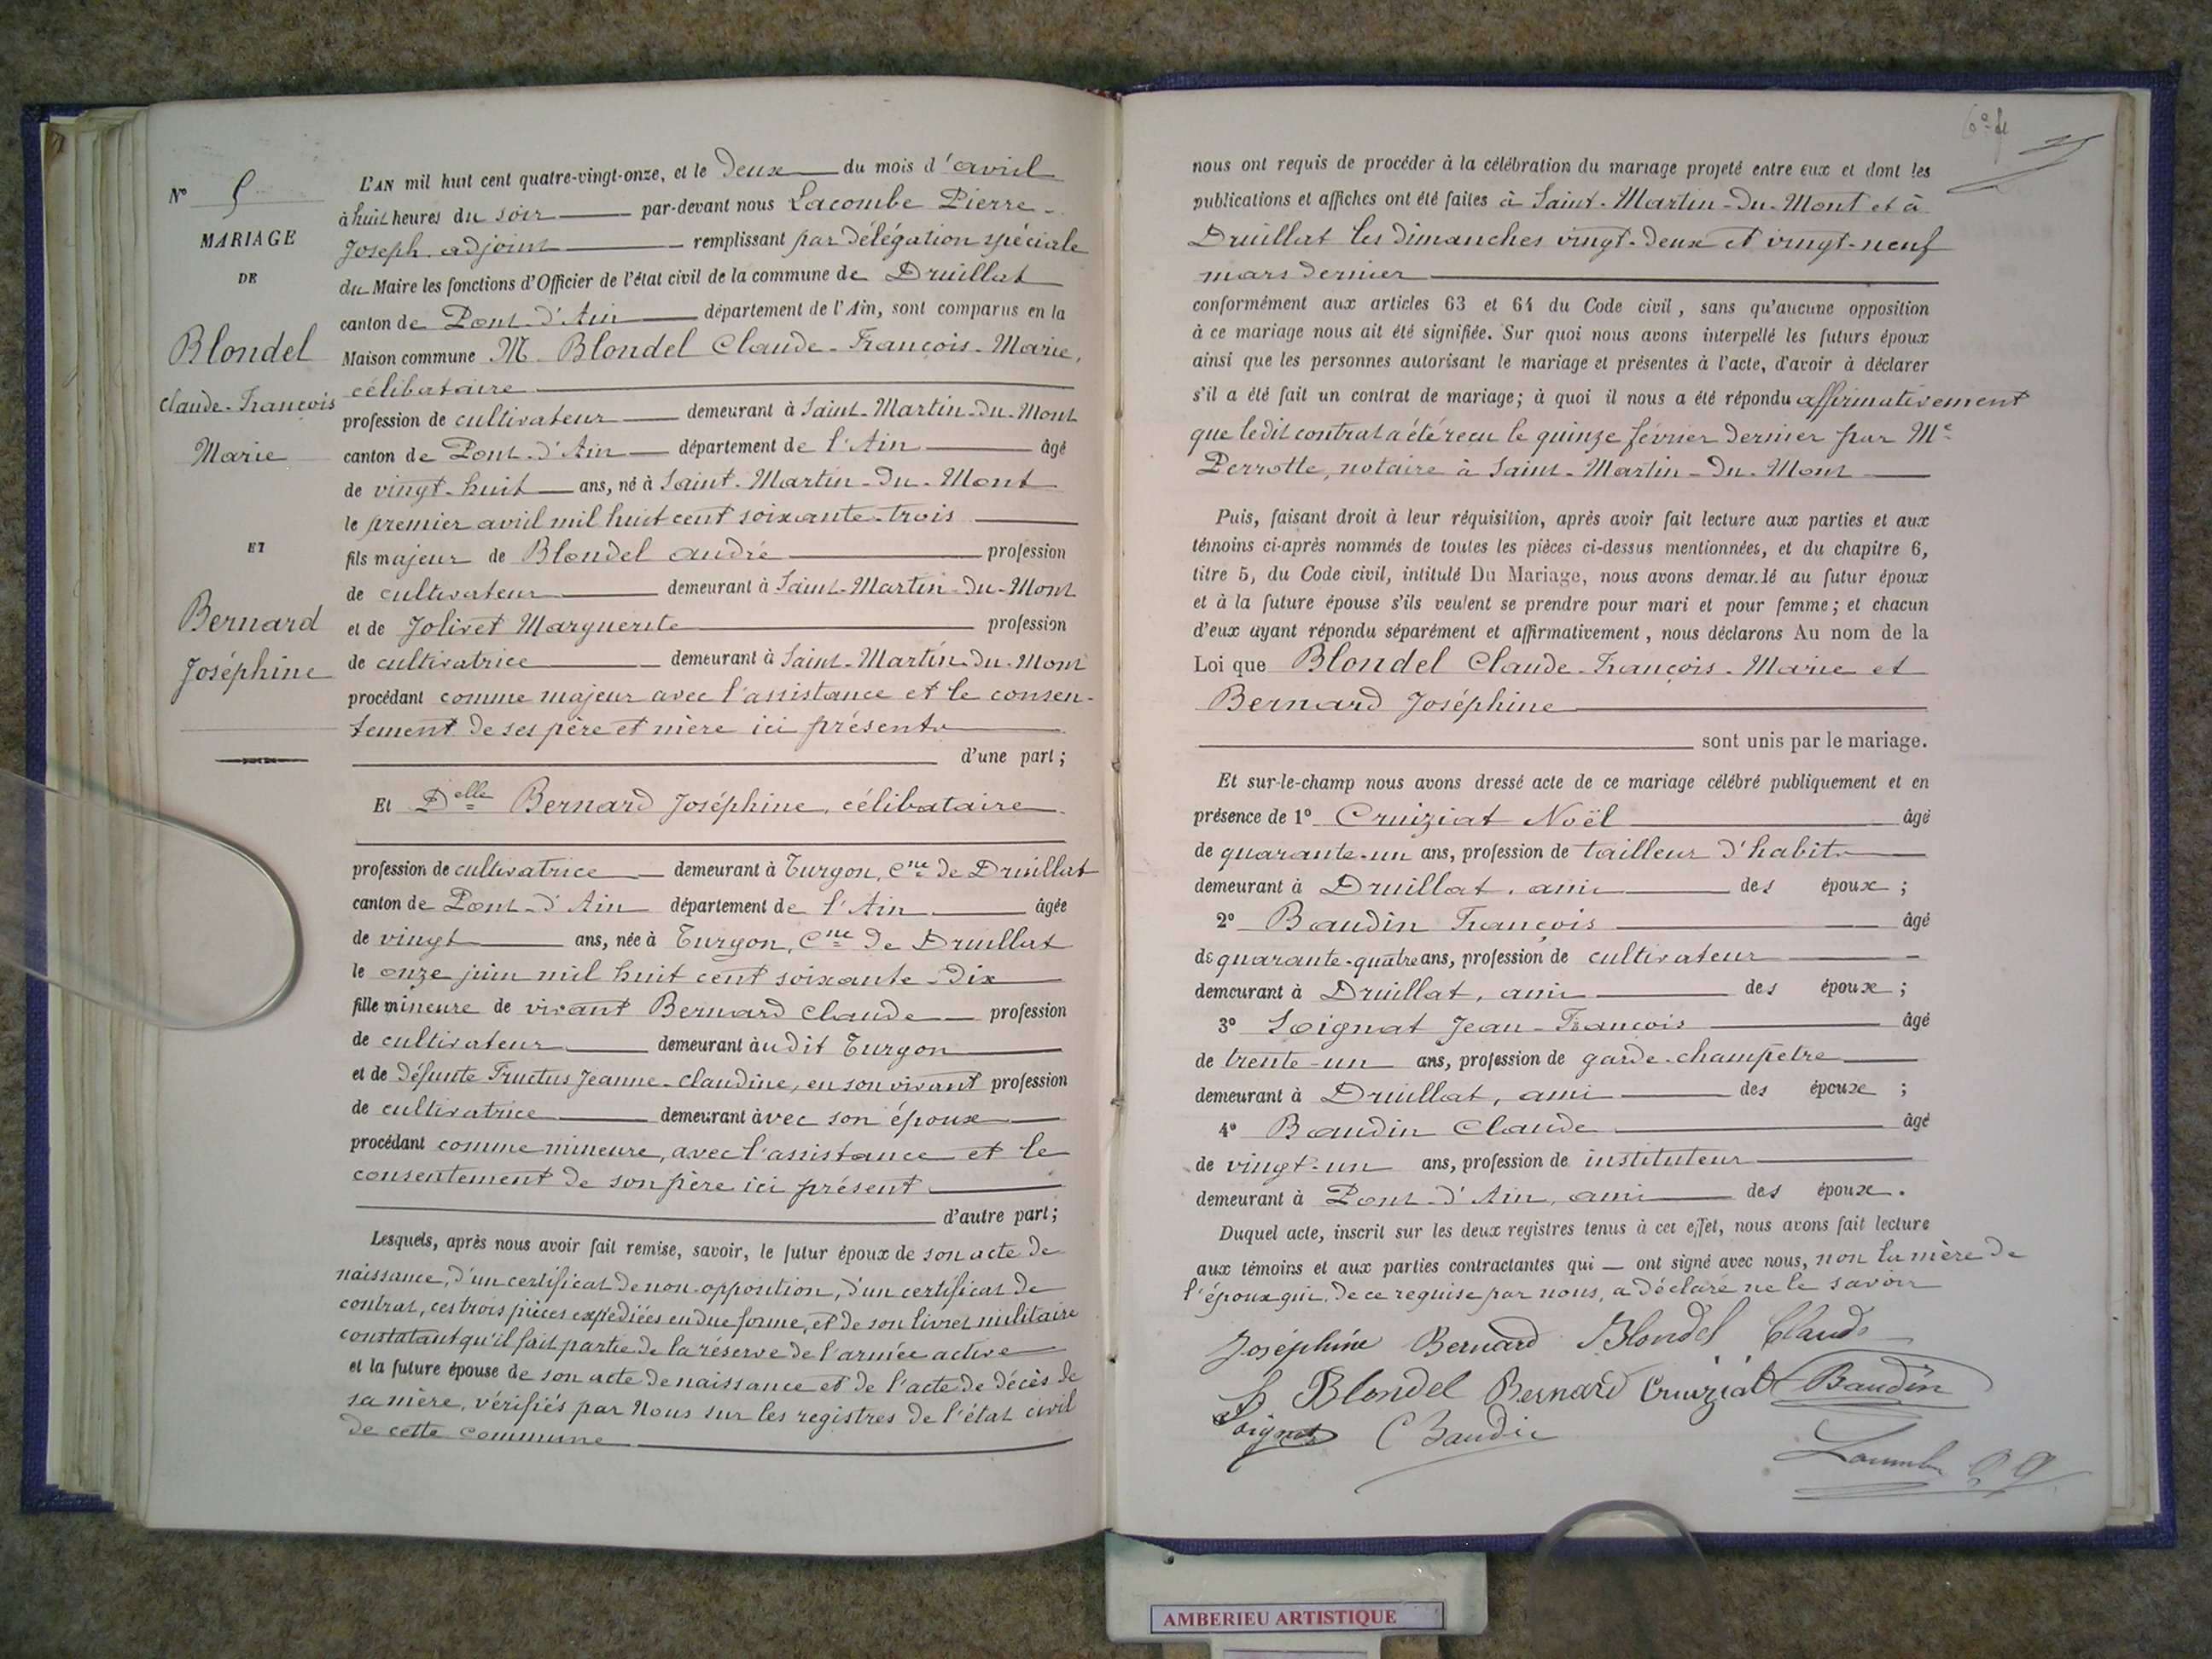 N° 5
MARIAGE
DE
Blondel
Claude-François
Marie
ET
Bernard
Joséphine
L'AN mil huit cent quatre-vingt-onze, et le deux du mois d'avril
à huit heures du soir par-devant nous Lacombe Pierre-
Joseph adjoint remplissant par délégation spéciale
du Maire les fonctions d'Officier de l'état civil de la commune de Druillat
canton de Pont-d'Ain département de l'Ain, sont comparus en la
Maison commune M Blondel Claude-François-Marie,
célibataire
profession de cultivateur demeurant à Saint-Martin-du-Mont
canton de Pont-d'Ain département de l'Ain âgé
de vingt-huit ans, né à Saint-Martin-du-Mont
le premier avril mil huit cent soixante-trois
fils majeur de Blondel andré profession
de cultivateur demeurant à Saint-Martin-du-Mont
et de Jolivet Marguerite profession
de cultivatrice demeurant à Saint-Martin-du-Mont
procédant comme majeur avec l'assistance et le consen-
tement de ses père et mère ici présents
d'une part;
Et Delle Bernard Joséphine, célibataire
profession de cultivatrice demeurant à Turgon, Cne de Druillat
canton de Pont-d'Ain département de l'Ain âgée
de vingt ans, née à Turgon, Cne de Druillat
le onze juin mil huit cent soixante-dix
fille mineure de vivant Bernard Claude profession
de cultivateur demeurant àudit Turgon
et de défunte Fructus Jeanne-Claudine, en son vivant profession
de cultivatrice demeurant àvec son époux
procédant comme mineure, avec l'assistance et le
consentement de son père ici présent
d'autre part;
Lesquels, après nous avoir fait remise, savoir, le futur époux de son acte de
naissance, d'un certificat de non-opposition, d'un certificat de
contrat, ces trois pièces expédiées en due forme, et de son livret militaire
constatant qu'il fait partie de la réserve de l'armée active
et la future épouse de son acte de naissance et de l'acte de décès de
sa mère, vérifiés par Nous sur les registres de l'état civil
de cette commune
nous ont requis de procéder à la célébration du mariage projeté entre eux et dont les
publications et affiches ont été faites à Saint-Martin-du-Mont et à
Druillat les dimanches vingt-deux et vingt-neuf
mars dernier
conformément aux articles 63 et 64 du Code civil, sans qu'aucune opposition
à ce mariage nous ait été signifiée. Sur quoi nous avons interpellé les futurs époux
ainsi que les personnes autorisant le mariage et présentes à l'acte, d'avoir à déclarer
s'il a été fait un contrat de mariage; à quoi il nous a été répondu affirmativement
que ledit contrat a été reçu le quinze février dernier par Me
Perrotte, notaire à Saint-Martin-du-Mont
Puis, faisant droit à leur réquisition, après avoir fait lecture aux parties et aux
témoins ci-après nommés de toutes les pièces ci-dessus mentionnées, et du chapitre 6,
titre 5, du Code civil, intitulé Du Mariage, nous avons demandé au futur époux
et à la future épouse s'ils veulent se prendre pour mari et pour femme; et chacun
d'eux ayant répondu séparément et affirmativement, nous déclarons Au nom de la
Loi que Blondel Claude-François-Marie et
Bernard Joséphine
sont unis par le mariage.
Et sur-le-champ nous avons dressé acte de ce mariage célébré publiquement et en
présence de 1° Cruiziat Noël âgé
de quarante-un ans, profession de tailleur d'habits
demeurant à Druillat, ami des époux;
2° Baudin François âgé
de quarante-quatre ans, profession de cultivateur
demeurant à Druillat, ami des époux;
3° Loignat Jean-François âgé
de trente-un ans, profession de garde-champêtre
demeurant à Druillat, ami des époux;
4° Baudin Claude âgé
de vingt-un ans, profession de instituteur
demeurant à Pont-d'Ain, ami des époux.
Duquel acte, inscrit sur les deux registres tenus à cet effet, nous avons fait lecture
aux témoins et aux parties contractantes qui ont signé avec nous, non la mère de
l'époux qui, de ce requise par nous, a déclaré ne le savoir
Joséphine Bernard Blondel Claude
Blondel Bernard Cruiziat Baudin
Loignat C Baudin
Lacombe
AMBERIEU ARTISTIQUE